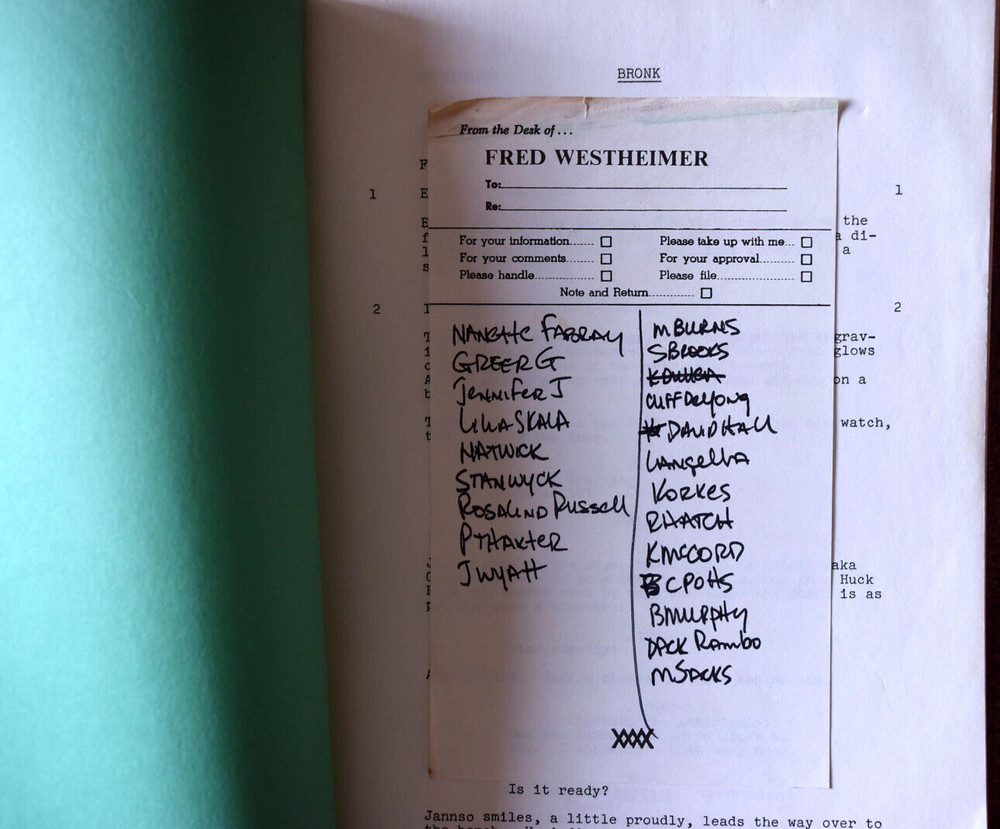 BRONK
From the Desk of...
FRED WESTHEIMER
To:
Re:
1 1
the
a di-
a
For your information....... Please take up with me...
For your comments....... For your approval..........
Please handle.................. Please file..........................
Note and Return..............
2 2
grav-
glows
on a
watch,
NANETTE FABRAY
GREER G
JENNIFER J
LILIA SKALA
NATWICK
STANWYCK
ROSALIND RUSSELL
P THAXTER
J WYATT
M BURNS
S BROOKS
CLIFF DEYONG
DAVID HALL
LANGELLA
KORKES
R HATCH
K MCCORD
C POTTS
B MURPHY
DACK RAMBO
M SACKS
XXXX
aka
Huck
is as
Is it ready?
Jannso smiles, a little proudly, leads the way over to